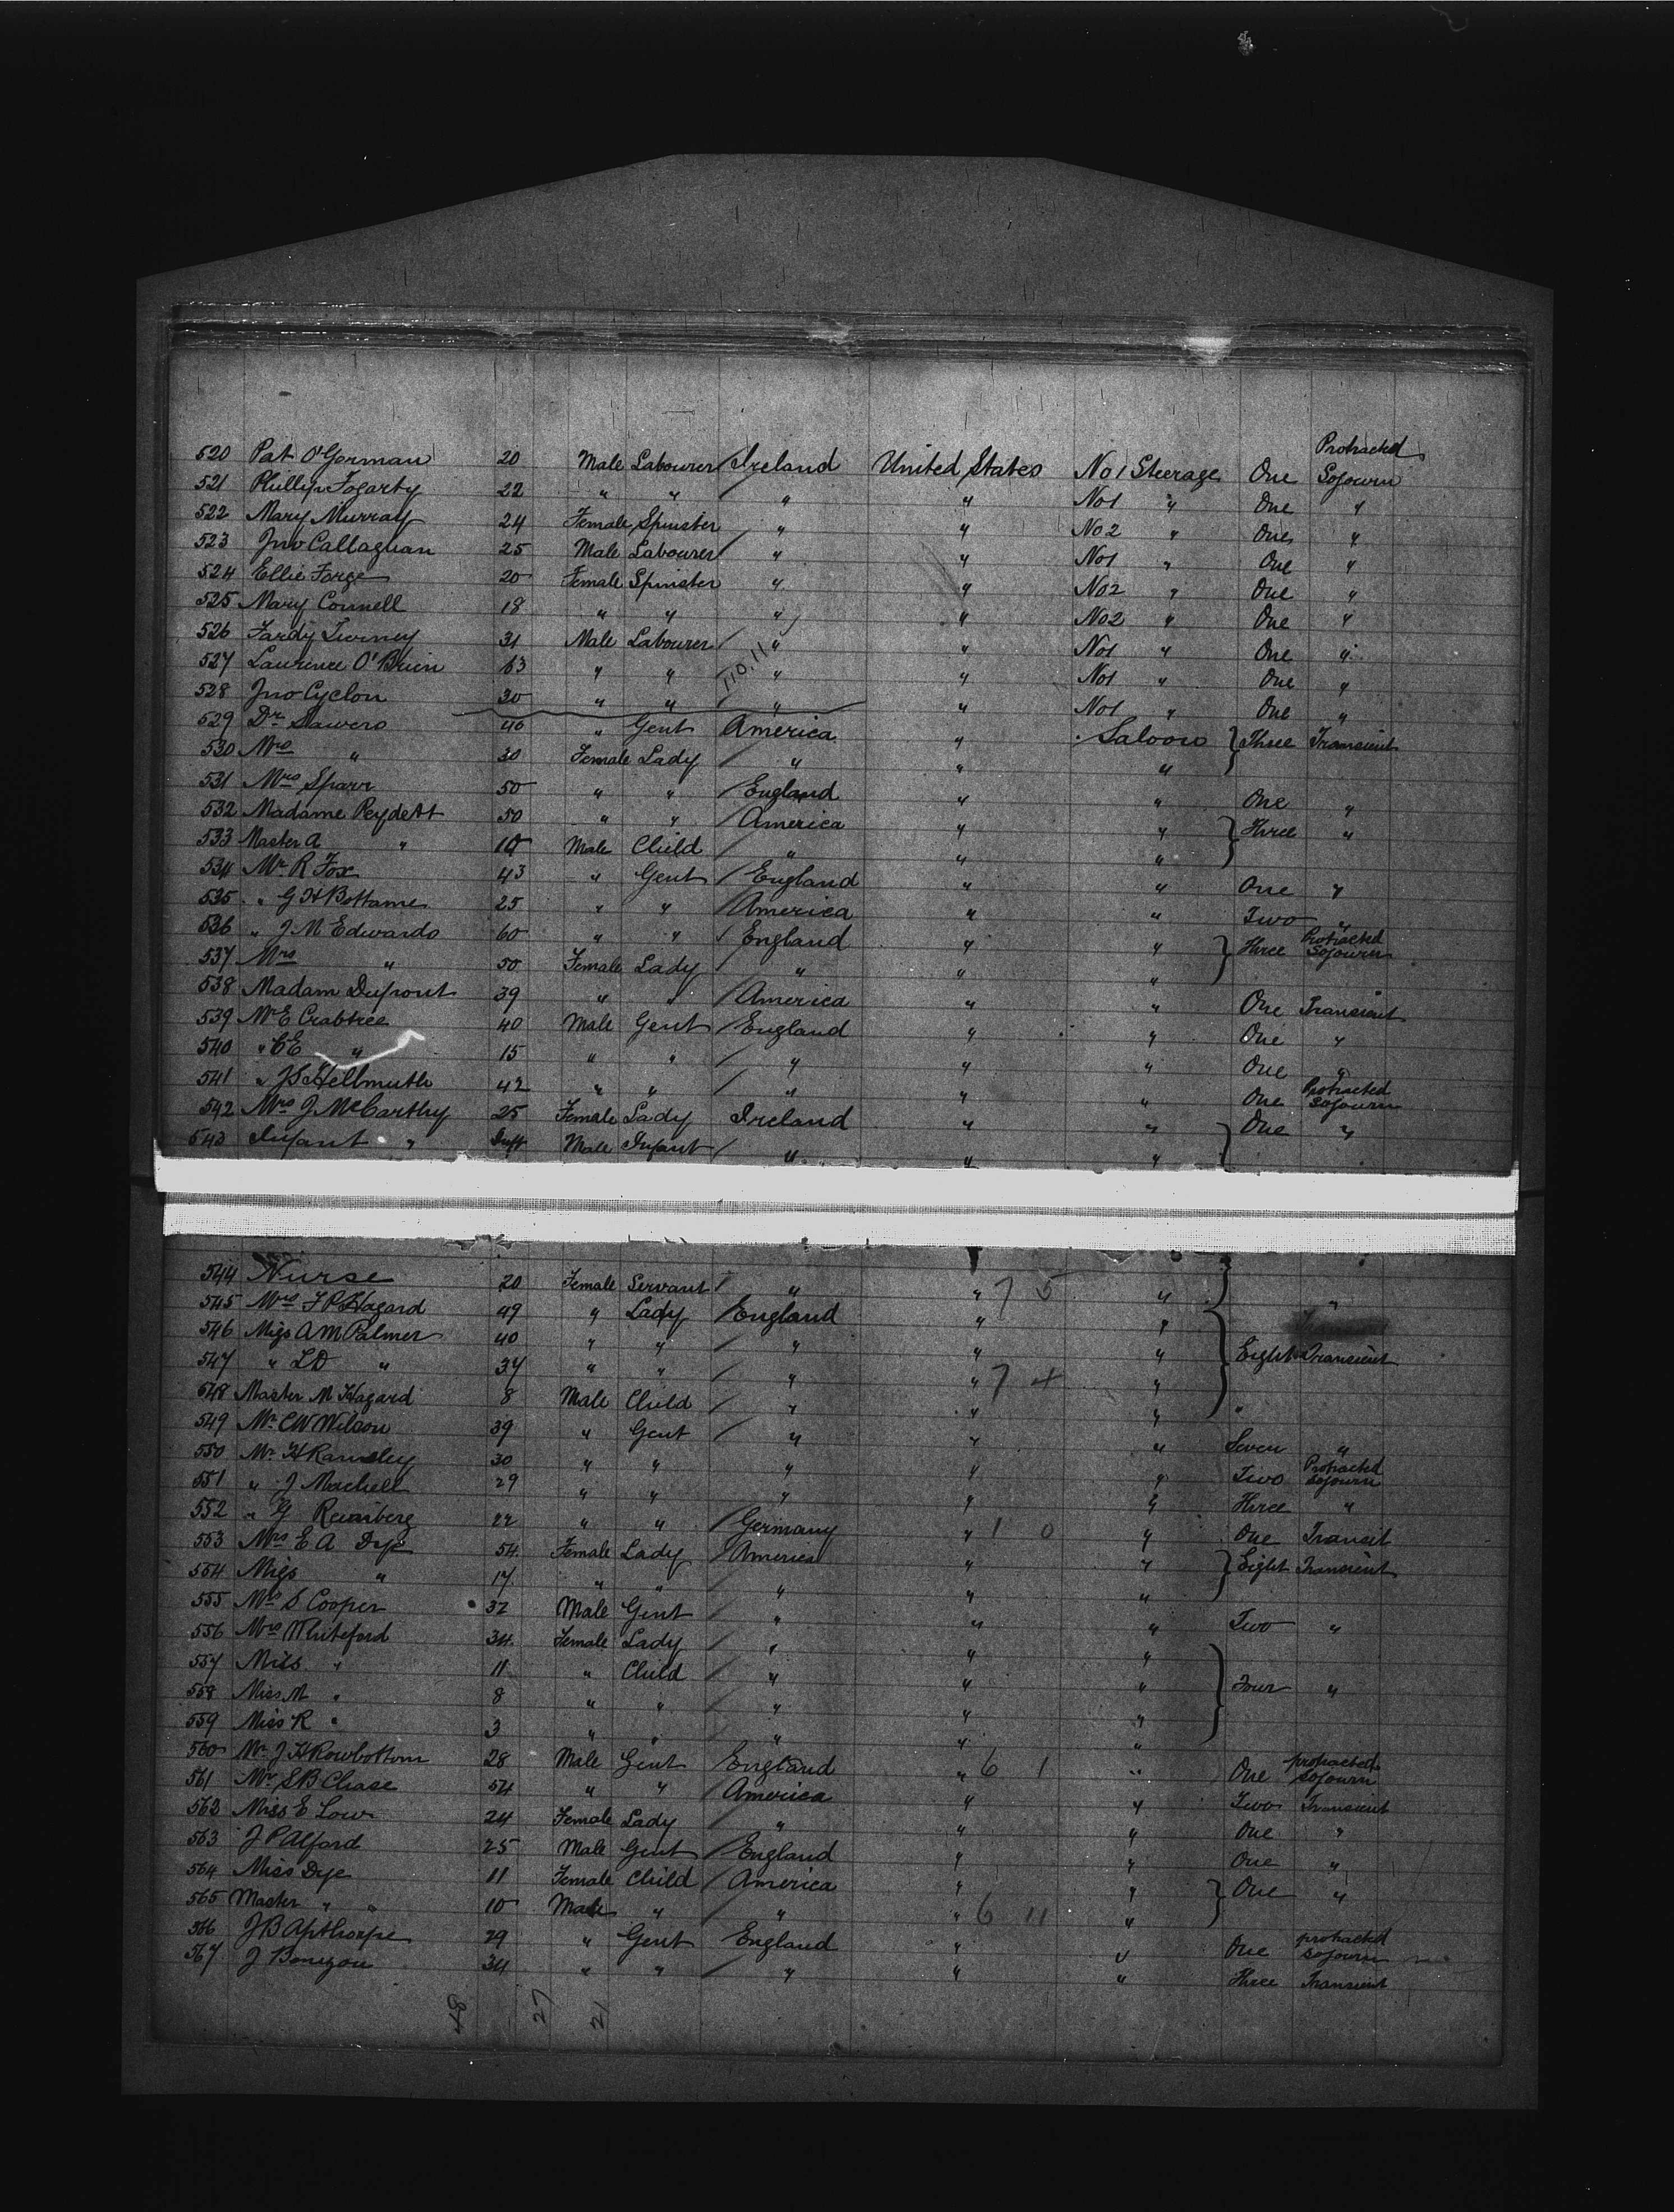 Protracted
520 Pat O'Gorman 20 Male Labourer Ireland United States No 1 Steerage One Sojourn
521 Phillip Fogarty 22 " " " " No1 " One "
522 Mary Murray 24 Female Spinster " " No 2 " One "
523 Jno Callaghan 25 Male Labourer " " No1 " One "
524 Ellie Forge 20 Female Spinster " " No2 " One "
525 Mary Connell 18 " " " " No2 " One "
526 Fardy Tierney 31 Male Labourer " " No1 " One "
527 Laurence O'Brien 63 " " " " No1 " One "
528 Jno Cyclon 30 " " " " No1 " One "
529 Dr 40 " Gent America " Saloon } Three Transient
530 Mrs " 30 Female Lady " " "
531 Mrs Sparr 50 " " England " " One "
532 Madame Reydett 50 " " America " " } Three "
533 Master A " 10 Male Child " " "
534 Mr R Fox 43 " Gent England " " One "
535 " G H Bottame 25 " " America " " Two "
536 " J. M Edwards 60 " " England " " } Three Protracted Sojourn
537 Mrs " 50 Female Lady " " "
538 Madam Dupont 39 " " America " " One Transient
539 Mr E Crabtree 40 Male Gent England " " One "
540 " C E " 15 " " " " " One "
541 " J S Hellmuth 42 " " " " " One Protracted Sojourn
542 Mrs J McCarthy 25 Female Lady Ireland " " } One "
543 Infant " Inft Male Infant " " "
544 Nurse 20 Female Servant " " 7 5 " } "
545 Mrs F P Hagard 49 " Lady England " "
546 Miss A M Palmer 40 " " " " " } Eight Transient
547 " L D " 37 " " " " 7 4 "
548 Master M Hagard 8 Male Child " " " "
549 Mr C W Wilson 39 " Gent " " " Seven "
550 Mr H Ramsley 30 " " " " " Two Protracted Sojourn
551 " J Machell 29 " " " " " Three "
552 " G Reinberg 22 " " Germany " 1 0 " One Transit
553 Mrs E A Dye 54 Female Lady America " " } Eight Transient
554 Miss " 17 " " " " "
555 Mr S Cooper 32 Male Gent " " " Two "
556 Mrs Whiteford 34 Female Lady " " "
557 Miss " 11 " Child " " " } Four "
558 Miss M " 8 " " " " "
559 Miss R " 3 " " " " "
560 Mr J H Rowbottom 28 Male Gent England " 6 1 " One protracted Sojourn
561 Mr S B Chase 54 " " America " " Two Transient
562 Miss E Low 24 Female Lady " " " One "
563 J P Alford 25 Male Gent England " " One "
564 Miss Dye 11 Female Child America " " } One "
565 Master " " 10 Male " " " 6 11 "
566 J B Apthorpe 29 " Gent England " " One protracted Sojourn
567 J 34 " " " " " Three Transient
48 27 21